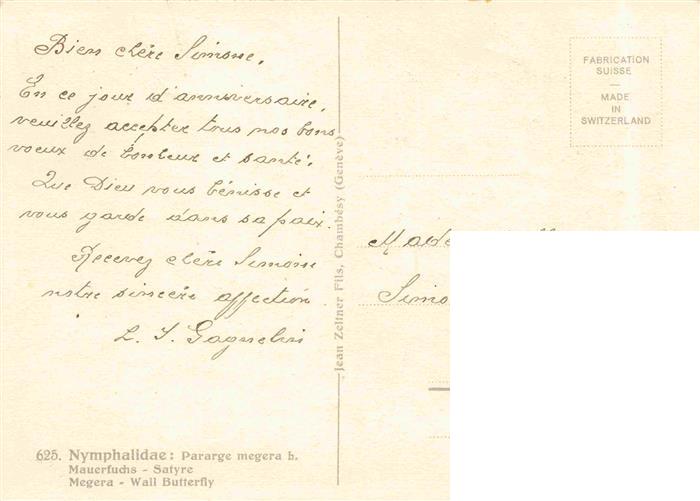 Bien chère Simone,
En ce jour d'anniversaire,
veuillez accepter tous nos bons
voeux de bonheur et santé.
Que Dieu vous bénisse et
vous garde dans sa paix.
Recevez chère Simone
notre sincère affection
L. J. Gagnebin
625. Nymphalidae: Pararge megera h.
Mauerfuchs - Satyre
Megera - Wall Butterfly
Jean Zeltner Fils, Chambésy (Genève)
FABRICATION
SUISSE
—
MADE
IN
SWITZERLAND